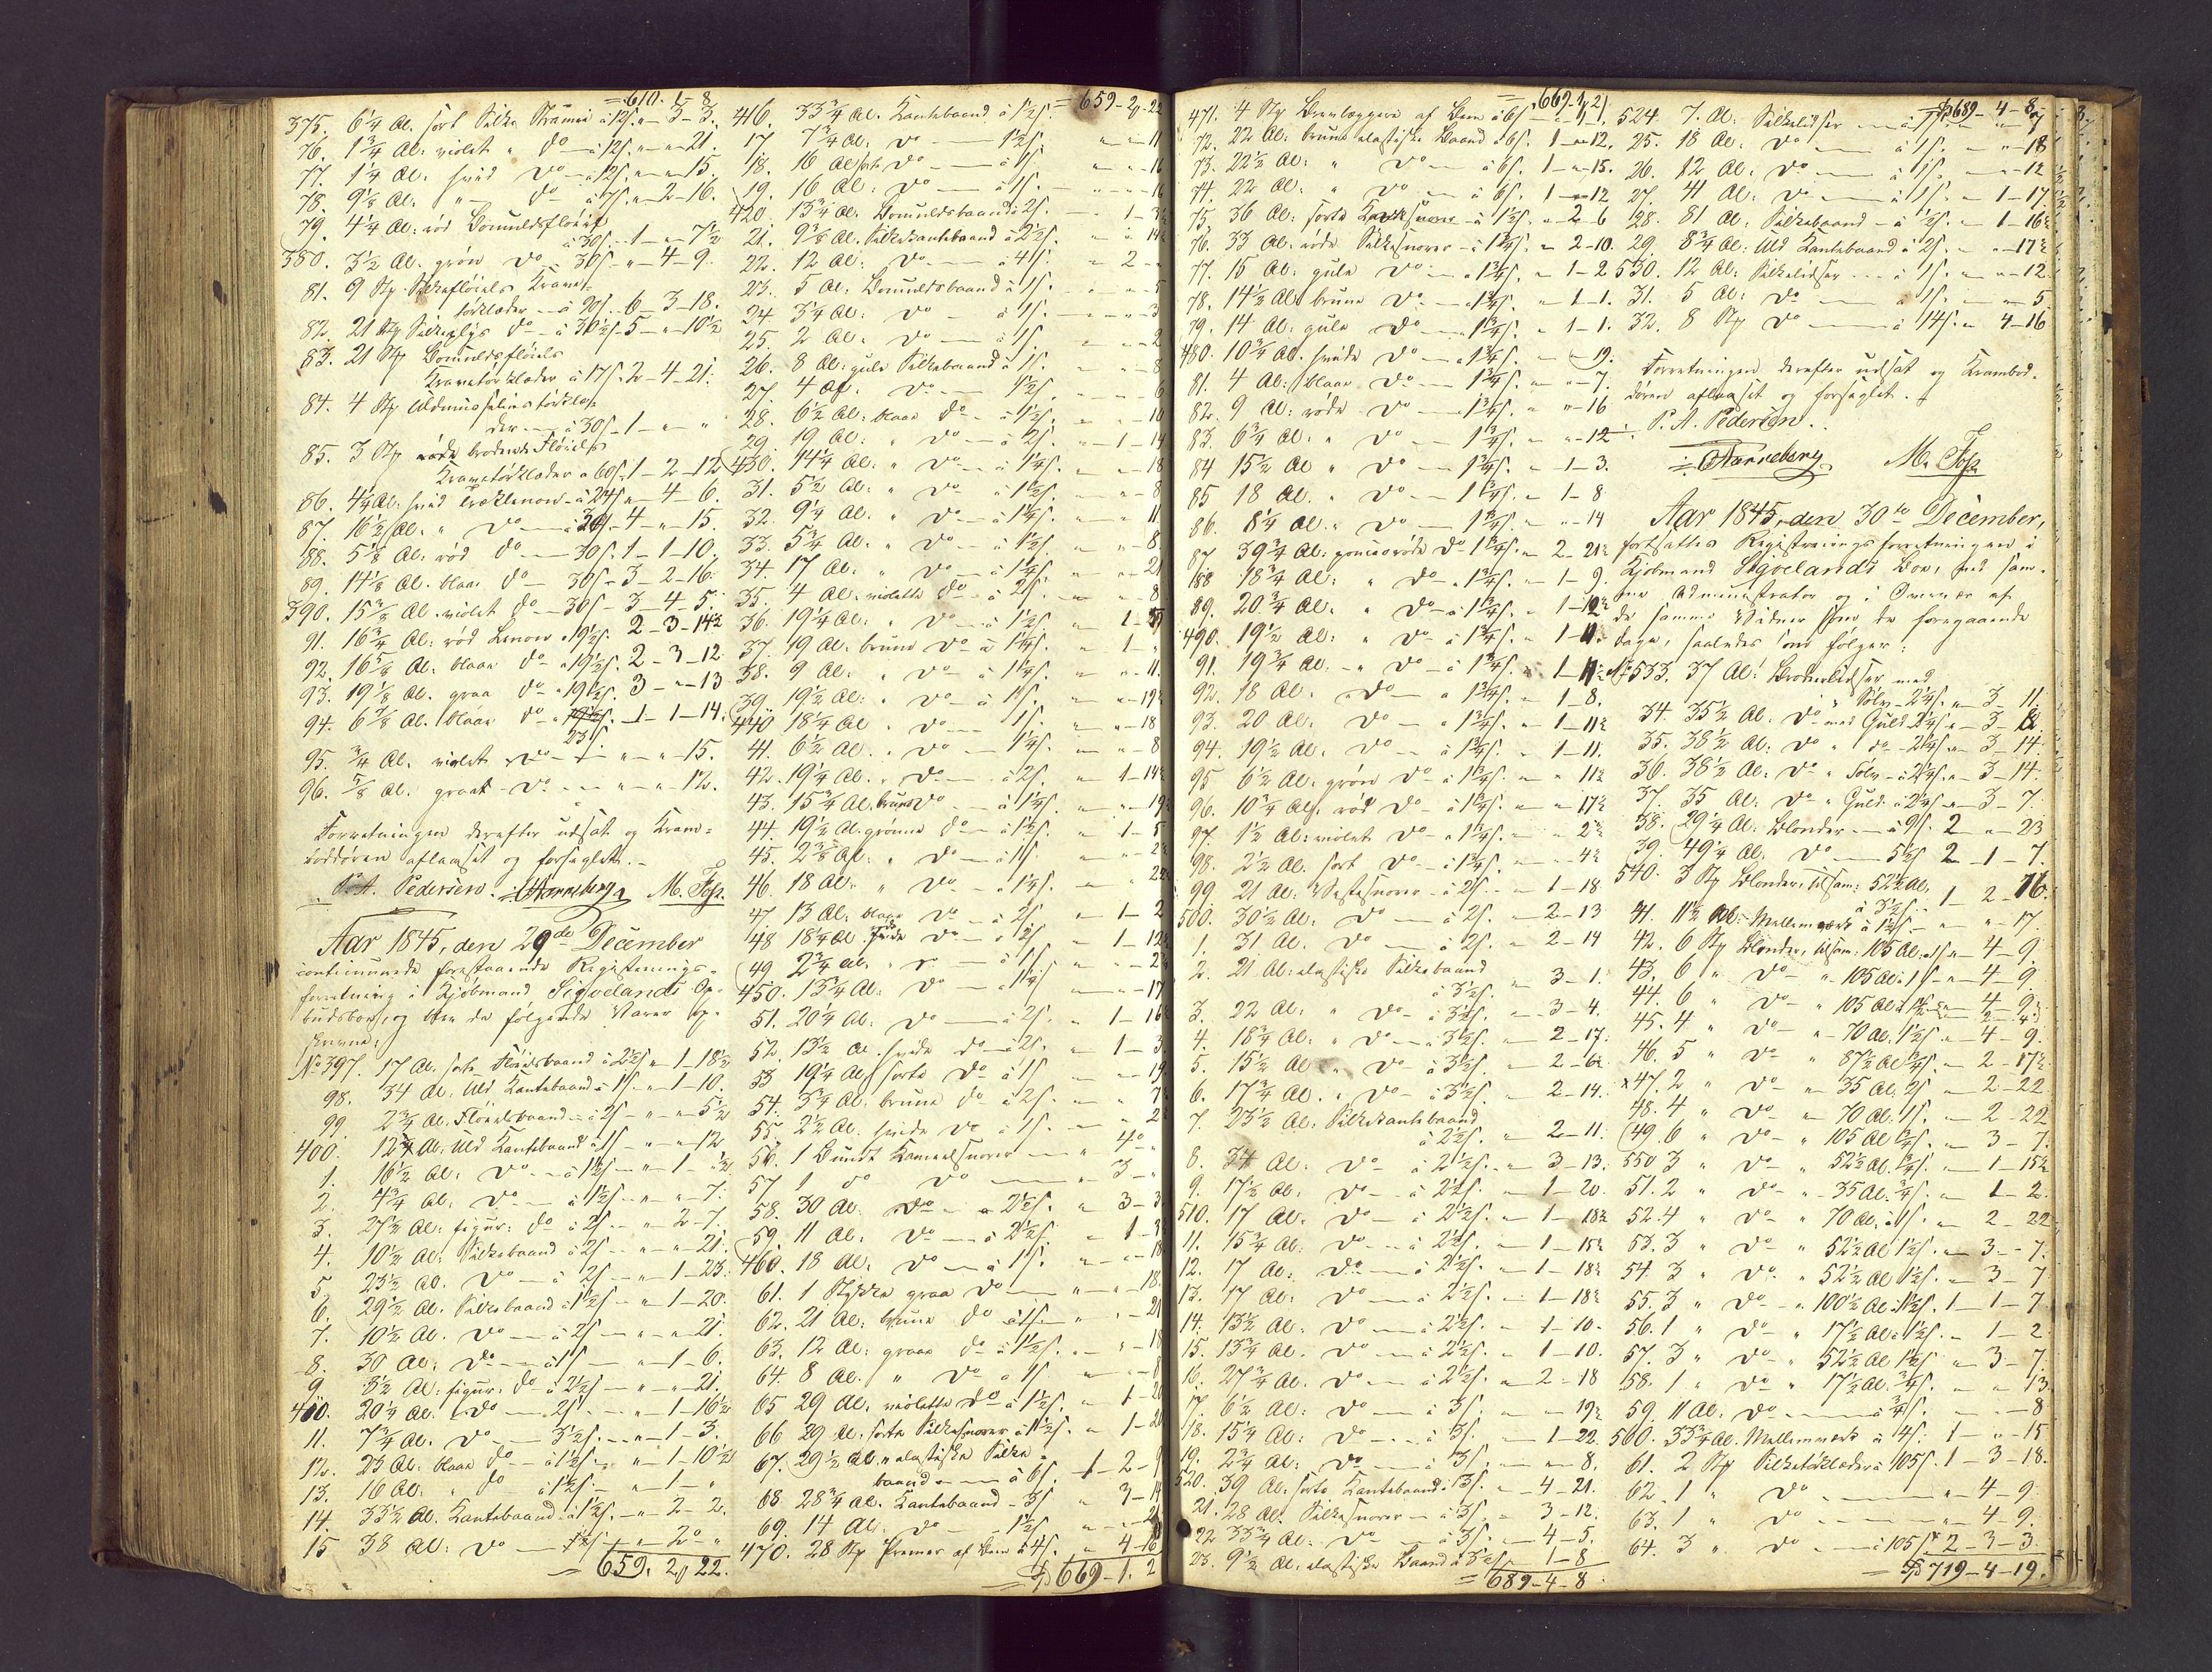 = 610. 1 - 8
375. 6¼ Al. sort Silke Kramei à 12 s. " - 3 - 3.
76. 1¾ Al: violet " do à 12 s. " - " - 21.
77. 1¼ Al: hvid do à 12 s. " - " - 15.
78. 9⅛ Al: " do à 7 s. " - 2 - 16.
79. 4¼ Al: rød Bomuldsfløiel
à 30 s. - 1 - " - 7½
380. 3½ Al. grøn do 30 s - " - 4 - 9.
81. 9 Stk Silkefløiels Krave-
tørklæder à 90 s. 6 - 3 - 18.
82. 21 Stk Silkeplys do à 30½ s - 5 - " - 10½
83. 21 Stk Bomuldsfløiels
Kravetørklæder à 17 s. 2 - 4 - 21.
84. 4 Stk Uldmusselinstørklæ-
der à 30 s - 1 - " - "
85. 3 Stk røde broderede Fløiels
Kravetørklæder à 60 s. 1 - 2 - 12
86. 4¼ Al: hvid à 24 s " - 4 - 6.
87. 16½ Al. " do - 4 - " - 15.
88. 5⅛ Al: rød do 30 s. 1 - 1 - 10.
89. 14⅛ Al. blaa do 30 s - 3 - 2 - 16.
390. 15⅜ Al. violet do 30 s - 3 - 4 - 5.
91. 16¾ Al: rød Lenon à 19½ s. 2 - 3 - 14½
92. 16⅝ Al: blaa do à 19½ s. 2 - 3 - 12.
93. 19⅛ Al. graa do à 19½ s. 3 - " - 13
94. 6⅞ Al. blaa do 1 - 1 - 14.
23 s.
95. ¾ Al. violet do " - " - 15.
96. ⅝ Al. graat do " - " - 12.
Forretningen derefter udsat og Kram-
boddøren aflaaset og forseglet. -
P.A. Pedersen. Aarreberg M. Foss.
Aar 1845, den 29de December
continuerede forestaaende Registrerings-
forretning i Kjøbmand Sigvelands Op-
budsboe, og blev da følgende Varer op-
skrevne:
No 397. 17 Al. sort Fløielsbaand à 2½ s " 1 - 18½
98. 34 Al. Uld Kantebaand à 1 s. " 1 - 10.
99 2¾ Al. Fløielsbaand à 2 s - " - " 5½
400. 12¼ Al: Uld Kantebaand à 1 s - " - " 12
1. 16½ Al: do à 1½ s - " 1 - "½
2. 4¾ Al: do à 1½ s - " - " 7.
3. 27½ Al: figur: do à 2 s - " 2 - 7.
4. 10½ Al: Silkebaand à 2 s - " - " 21.
5. 23½ Al. do à 2 s - " 1 - 23.
6. 29½ Al. Silkebaand à 1½ s - " 1 - 20.
7. 10½ Al. do à 2 s - " - " 21.
8. 30 Al: do à 1 s - " 1 - 6.
9 8½ Al: figur: do à 2½ s - " - " 21.
410. 20¼ Al. do 2 s - " 1 - 16½
11. 7¾ Al. do 3½ s. - " 1 - 3.
12. 23 Al: blaa do à 1½ s - " 1 - 10½
13. 16 Al: " do à 1½ s - " 1 - "
14. 33½ Al. Kantebaand à 1½ s. - " 2 - 2.
15 38 Al: do " 2 - "
= 659. 2. 22.
= 659 - 2 - 22
416. 33¾ Al. Kantebaand à 1½ s.
17 7¾ Al: do 1½ s. " - " 11
18. 16 Al sort do à 1 s. " - " 16
19. 16 Al: do à 1 s. " - " 16
420. 13¾ Al. Bomuldsbaand à 2 s. 1 - 3½
21. 9⅝ Al. Silkekantebaand à 2½ s.
22. 12 Al: do à 4 s. " 2 - "
23. 5 Al. Bomuldsbaand à 1 s. " - " 5
24 3¼ Al: do à 1 s. " - " 3
25. 2 Al. do à 1 s. " - " 2
26. 8 Al: gule Silkebaand à 1 s. " - " 8
27. 4 Al. do 1½ s. " 6
28. 6½ Al: blaa do à 1½ s. " 10
29. 19 Al: " do à 2 s. " 1 - 14
430. 14¼ Al: " do à 1¼ s. " 18
31. 5½ Al: " do à 1½ s. " 8
32. 9¼ Al. " do à 1¼ s. " 11
33. 5¾ Al: " do à 1½ s. " 8
34. 17 Al. " do à 1¼ s. " - 21
35. 4 Al. violette do à 2 s. " 8
36. 19¼ Al: " do à 1½ s. " 1 -
37. 19 Al: brune do à 1¼ s. " 1 - "
38. 9 Al: " do à 1¼ s. " - 11
39. 19½ Al: " do à 1 s. " - 19½
440 18¼ Al " do 1 s. " - 18
41. 6½ Al. " do 1¼ s. " - 8
42. 19¼ Al. " do à 2 s. " 1 - 14½
43. 15¾ Al. brune do à 1¼ s. " - 19½
44. 19½ Al. grønne do à 1½ s. " 1 - 5
45. 2⅜ Al: " do à 1 s. " 2½
46. 18 Al: " do à 1¼ s. " 22½
47 13 Al: blaa do à 2 s. " 1 - 2
48 18¼ Al. hvide do à 2 s. " 1 - 12½
49. 2¾ Al. " do à 1 s " - 2¾
450. 13¾ Al: do à 1¼ s " - 17
51. 20¼ Al: do à 2 s. " 1 - 16½
52. 13½ Al. hvide do à 2 s. " 1 - 3
53 19¼ Al. sorte do à 1 s " - 19
54. 3¾ Al. brune do à 2 s. " 7½
55. 2½ Al. hvide do à 1 s. " 2½
56. 1 Bundt Kameelsnorer " 4 "
57 1 do do " 3 - "
58. 30 Al. do à 2½ s. " 3 - 3
59. 11 Al: do à 2½ s. " 1 - 3½
460. 18 Al: do à 1 s. " - 18
61. 1 Stykke graa do " 18
62. 21 Al: brune do à 1 s. " 21
63. 12 Al: graae do à 1½ s. " 18
64. 8 Al. " do à 1 s. " 8
65 29 Al. violette do à 1½ s. " 1 - 20
66 29 Al. sorte Silkesnorer à 1½ s. " 1 - 20
67. 29½ Al. elastiske Silke-
baand à 6 s. 1 - 2 - 9
68 28¾ Al. Kantebaand 3 s. " 3 - 14
69. 14 Al. do 1½ s. " - 21
470. 28 Stk af Been à 4 s. " 4 - 16
= Spd 669 - 1. 2
= 669 - 1. 21
471. 4 Stk af Been à 6 s. " 1 - 1.
72. 22 Al: brune elastiske Baand à 6 s. 1 - " - 12.
73. 22½ Al: " do à 6 s. 1 - " - 15.
74. 22 Al: " do à 6 s. 1 - " - 12
75. 36 Al: sorte Kantesnorer à 1½ s. " 2 - 6
76. 33 Al: røde Silkesnorer à 1¾ s. " 2 - 10.
77. 15 Al: gule do à 1¾ s. " 1 - 2
78. 14½ Al: brune do à 1¾ s. " 1 - 1.
79. 14 Al: gule do à 1¾ s. " 1 - 1.
480. 10¾ Al. hvide do à 1¾ s. " - 19.
81. 4 Al: blaae do 1¾ s. " - 7.
82. 9 Al: røde do 1¾ s. " " 16
83. 6¾ Al: " do 1¾ s. " - 12
84 15½ Al " do 1¾ s. " 1 - 3.
85 18 Al. " do 1¾ s. " 1 - 8
86. 8¼ Al. " do 1¾ s. " " 14
87 39¾ Al: ponceaurøde do 1¾ s. " 2 - 21½
488 18¾ Al: " do à 1¾ s. " 1 - 9.
89. 20¾ Al. " do à 1¾ s. " 1 - 12½
490. 19½ Al: " do à 1¾ s. " 1 -
91. 19¾ Al. " do à 1¾ s. " 1 -
92. 18 Al. do à 1¾ s. " 1 - 8.
93. 20 Al: do à 1¾ s. " 1 - 11½
94. 19½ Al. do à 1¾ s. " 1 - 11.
95 6½ Al: grøn do à 1¾ s. " " 11½
96. 10¾ Al. rød do à 1¾ s. " " 17½
97. 1½ Al: violet do à 1¾ s. " " 2½
98. 2½ Al. sort do à 1¾ s. " " 4½
99 21 Al: Vestesnorer à 2 s. " 1 - 18
500. 30½ Al: do à 2 s. " 2 - 13
1. 31 Al. do à 2 s. " 2 - 14
2. 21 Al: elastiske Silkebaand
à 3½ s. " 3 - 1.
3. 22 Al: " do à 3½ s. " 3 - 4.
4. 18¾ Al: " do à 3½ s. " 2 - 17.
5. 15½ Al " do à 3½ s. " 2 - 6½
6. 17¾ Al. " do à 3½ s. " 2 - 14.
7. 23½ Al. Silkekantebaand
à 2½ s. " 2 - 11.
8. 34 Al: do à 2½ s. " 3 - 13.
9. 17½ Al: do à 2½ s. " 1 - 20.
510. 17 Al. do à 2½ s. " 1 - 18½
11. 15¾ Al: do à 2½ s. " 1 - 15½
12. 17 Al: do à 2½ s. " 1 - 18½
13. 17 Al: do à 2½ s. " 1 - 18½
14. 13½ Al: do à 2½ s. " 1 - 10.
15. 13¾ Al. do à 2½ s. " 1 - 10.
16. 27¾ Al. do à 2½ s. " 2 - 18
17 6½ Al: do à 3 s. " " 19½
18. 15¼ Al: do à 3 s. " 1 - 22.
19. 2¾ Al: do à 3 s. " " 8.
520. 39 Al. sorte Kantebaand à 3 s. " 4 - 21.
21. 28 Al. Silkesnorer à 3 s. " 3 - 12.
22 33¾ Al: do à 3 s. " 4 - 5.
23. 9½ Al. elastiske Baand à 3½ s. 1 - 8
= 689 - 4 - 8.
= Spd 689 - 4 - 8
524. 7. Al: Silkelidser à 1 s. " " 7
25. 18 Al: do à 1 s. " " 18
26. 12 Al: do à 1 s. " " 12
27. 41 Al: do à 1 s. " 1 - 17.
28. 81 Al: Silkebaand à ½ s. " 1 - 16½
29. 8¾ Al: Uld Kantebaand à 2 s. " " 17½
530. 12 Al: Silkelidser à 1 s. " " 12.
31. 5 Al: do à 1 s. " " 5.
32. 8 Stk do à 14 s. " 4 - 16
Forretningen derefter udsat og Krambod-
døren aflaaset og forseglet.
P. A. Pedersen.
Aarreberg M. Foss
Aar 1845, den 30te December,
fortsattes Registreringsforretningen i
Kjøbmand Sigvelands Boe, med sam-
me Administrator og i Overvær af
de samme Vidner som de foregaaende
Dage, saaledes som følger:
No 533. 37 Al: Broderlidser med
Sølv 2¼ s. " 3 - 11.
34. 35½ Al: do med Guld 2¼ s " 3 - 8.
35. 38½ Al: do " do 2¼ s " 3 - 14.
36. 38½ Al: do " Sølv à 2¼ s. " 3 - 14.
37. 35 Al: do " Guld à 2¼ s " 3 - 7.
38. 29¼ Al: Blonder à 9 s. 2 " - 23
39. 49¼ Al: do 5½ s 2 - 1 - 7.
540. 3 Stk Blonder, tilsam: 52½ Al.
à 3½ s. 1 - 2 - 16.
41. 11½ Al: Mellemværk à 1½ s. " " - 17.
42. 6 Stk Blonder, tilsam: 105 Al: à 1 s " 4 - 9.
43. 6 " do " 105 Al: 1 s " 4 - 9.
44. 6 " do " 105 Al: 1 s " 4 - 9.
45. 4 " do " 70 Al. 1½ s " 4 - 9.
46. 5 " do " 87½ Al ¾ s. " 2 - 17½
x 47. 2 " do " 35 Al. 2 s " 2 - 22
48. 4 " do " 70 Al. 1 s. " 2 - 22
49. 6 " do " 105 Al ¾ s. " 3 - 7.
550 3 " do " 52½ Al. ¾ s. " 1 - 15½
51. 2 " do " 35 Al. ¾ s. " 1 - 2.
52. 4 " do " 70 Al. à 1 s. " 2 - 22
53. 3 " do " 52½ Al 1½ s. " 3 - 7.
54. 3 " do " 52½ Al 1½ s. " 3 - 7
55. 3 " do " 100½ Al à 1½ s. 1 - 1 - 7
56. 1 " do " 17½ Al à 1½ s. " 1 - 2.
57. 3 " do " 52½ Al 1½ s " 3 - 7
58. 1 " do " 17½ Al. ¾ s. " " 13.
59. 11 Al. do à ¾ s. " " 8
560. 33¾ Al. Mellemværk à 4 s. 1 - " - 15
61. 2 Stk Silketørklæder à 105 s. 1 - 3 - 18.
62. 1 " do " 4 - 9.
63. 1 " do " 4 - 9.
64. 3 " do à 105 s 2 - 3 - 3.
= Spd 719 - 4 - 19.